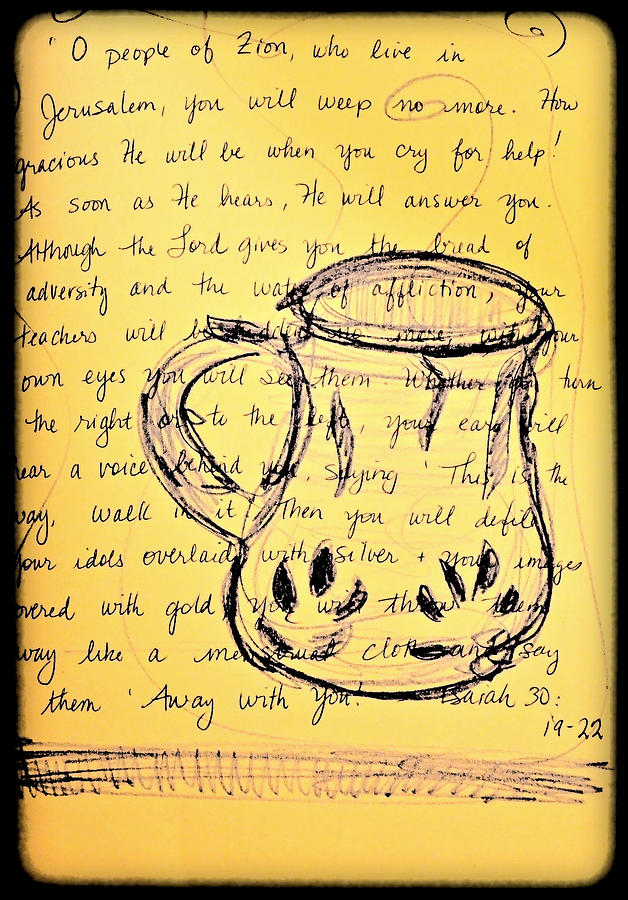 " O people of Zion, who live in
Jerusalem, you will weep no more. How
gracious He will be when you cry for help!
As soon as He hears, He will answer you.
Although the Lord gives you the bread of
adversity and the water of affliction, your
teachers will be hidden no more, with your
own eyes you will see them. Whether you turn
the right or to the left, your ears will
ear a voice behind you, saying ' This is the
way, walk in it.' Then you will defile
your idols overlaid with silver + your images
overed with gold you will throw them
way like a menstrual cloth and say
them ' Away with you! ' Isaiah 30:
19-22